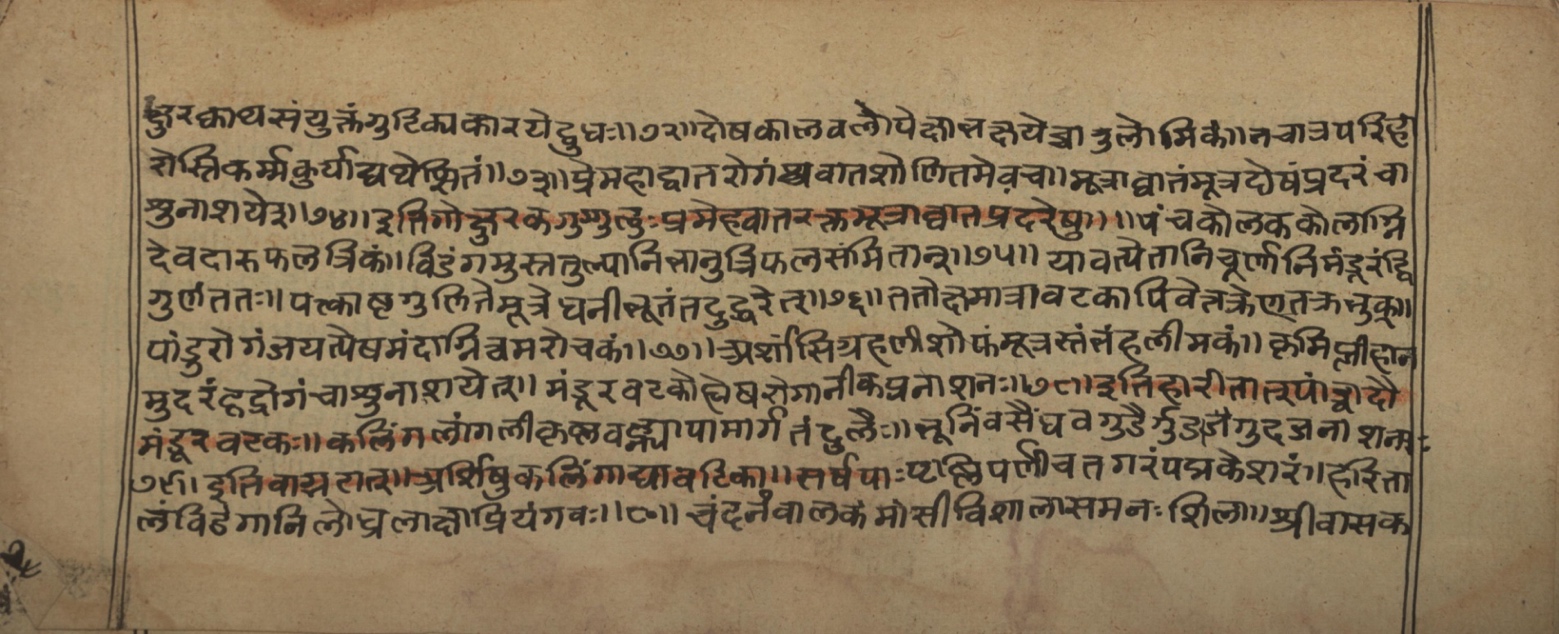 क्षुरक्वाथसंयुक्तंगुटिकाकारयेद्बुधः॥७२॥दोषकालवलापेक्षीभक्षयेच्चानुलोमिकं॥नचात्रपरिहा
रोस्तिकर्म्मकुर्याद्यथेप्सितं॥७३॥प्रेमहाद्वातरोगंश्चवातशोणितमेवच॥मूत्राघ्वातंमूत्रदोषंप्रदरंचा
शुनाशयेत्॥७४॥इतिगोक्षुरकगुग्गुलुःप्रमेहवातरक्तमूत्राघ्वातप्रदरेषु॥ ॥पंचकोलककोलाग्नि
देवदारुफलत्रिकं॥विडंगमुस्ततुल्यानिभानुत्रिफलसंमितान्॥७५॥ यावत्येतानिचूर्णानिमंडूरंद्वि
गुणंततः॥पक्त्काष्टगुणितेमूत्रेघनीभूतंतदुद्धरेत्॥७६॥ततोक्षमात्रावटकापिवेत्तक्रेणतक्रभुक्॥
पांडुरोगंजयत्येषमंदाग्नित्वमरोचकं॥७७॥अर्शांसिग्रहणीशोफंमूत्रस्तंभंहलीमकं॥कृमिप्लीहान
मुदरंहृद्रोगंचाशुनाशयेत्॥ मंडूरवटकोह्येषरोगानीकप्रनाशनः॥७८॥इतिहारीतात्पांड्वादौ
मंडूरवटकः॥कलिंगलांगलीकृष्णवह्न्यपामार्गतंदुलैः॥भूनिंवसैंधवगुडैर्गुडजैगुदजनाशनः
७९॥इतिवाग्भटात्॥अर्शिषुकलिंगाद्यावटिका॥सर्षपाःपिप्पलीचतगरंपद्मकेशरं॥हरिता
लंविडंगानिलोध्रलाक्षाप्रियंगवः॥८०॥ चंदनंवालकंमांसीविशालासमनःशिला॥श्रीवासक